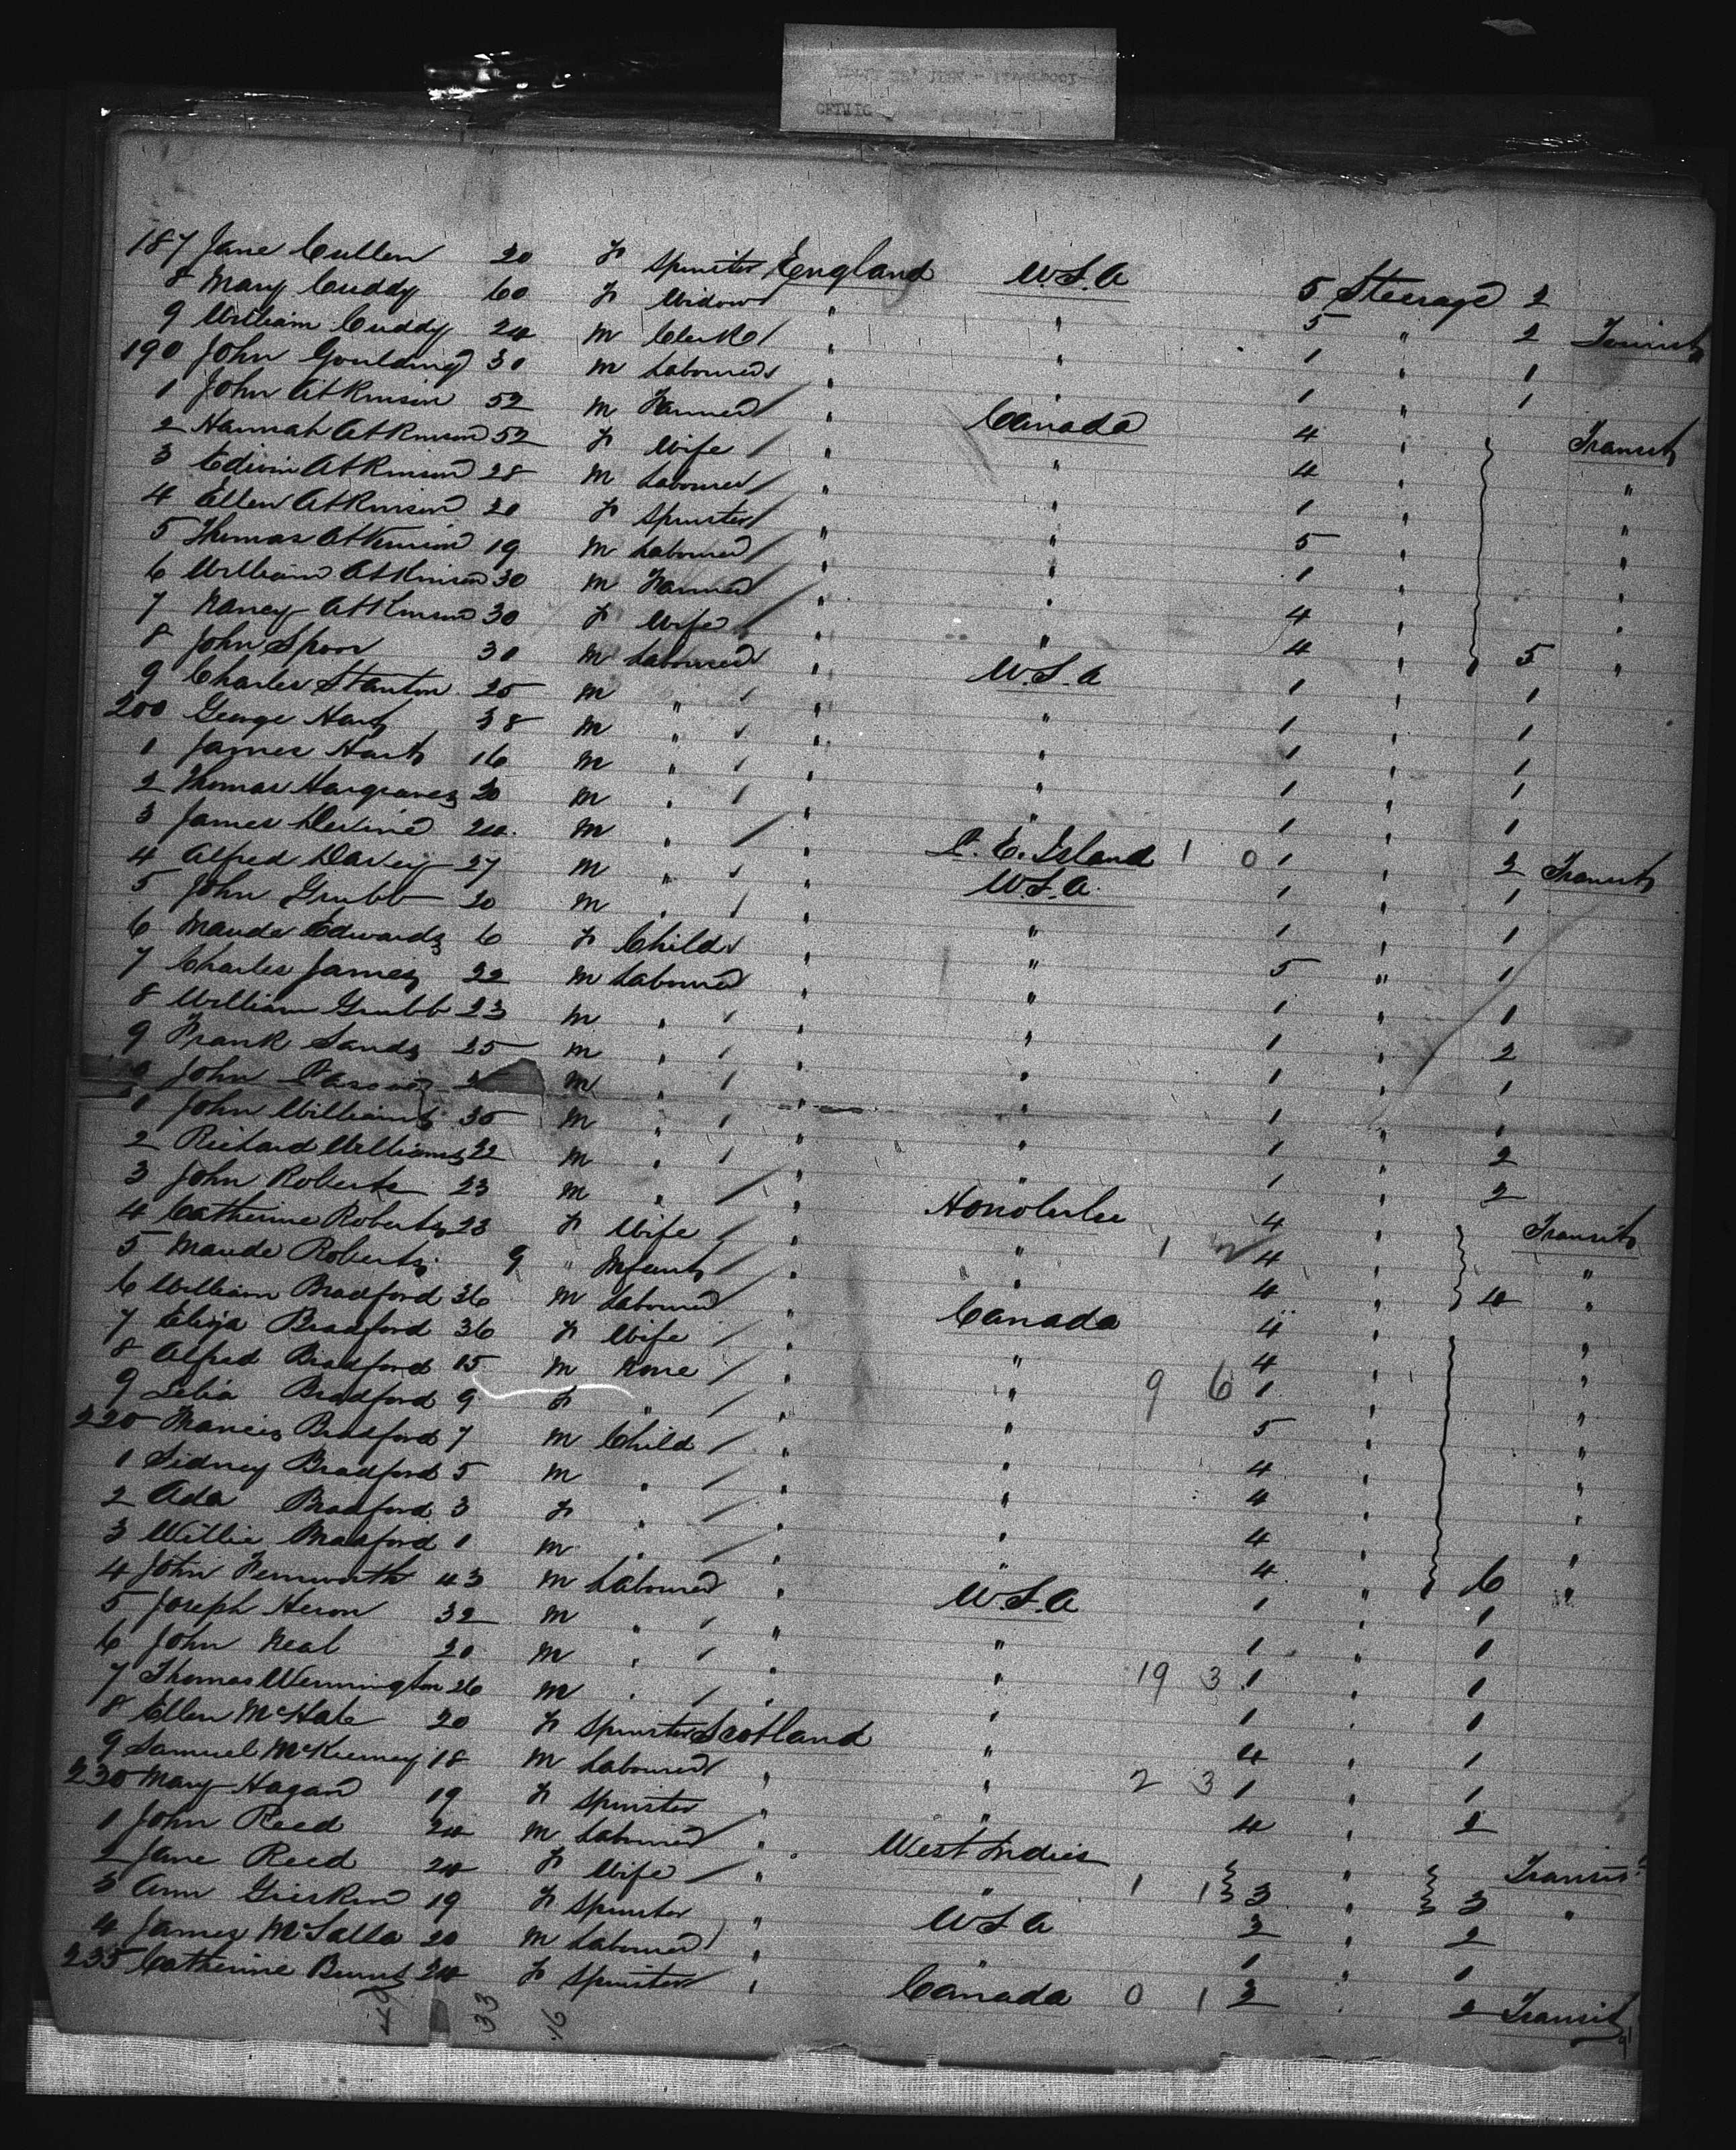 187 Jane Cullen 20 F Spinster England U.S.A 5 Steerage 2
8 Mary Cuddy 60 F Widow " " 5 " 2 Tourist
9 William Cuddy 24 M Clerk " " 1 " 1
190 John Goulding 30 M Labourer " " 1 " 1
1 John Atkinson 52 M Farmer " Canada 4 " Transit
2 Hannah Atkinson 52 F Wife " " 4 " "
3 Edwin Atkinson 28 M Labourer " " 1 " "
4 Ellen Atkinson 20 F Spinster " " 5 " "
5 Thomas Atkinson 19 M Labourer " " 1 " "
6 William Atkinson 30 M Farmer " " 4 " "
7 Nancy Atkinson 30 F Wife " " 4 " 5 "
8 John Spoor 30 M Labourer " U.S.A 1 " 1
9 Charles Stanton 25 M " " " 1 " 1
200 George Hart 38 M " " " 1 " 1
1 James Hart 16 M " " " 1 " 1
2 Thomas Hargraves 20 M " " " 1 " 1
3 James Devine 24 M " " P. E. Island 1 0 1 " 2 Transit
4 Alfred Davey 27 M " " U.S.A. 1 " 1
5 John Grubb 20 M " " " 1 " 1
6 Maude Edwards 6 F Child " " 5 " 1
7 Charles James 22 M Labourer " " 1 " 1
8 William Grubb 23 M " " " 1 " 2
9 Frank Sands 25 M " " " 1 " 1
John M " " " 1 " 1
1 John Williams 35 M " " " 1 " 2
2 Richard Williams 22 M " " " 1 " 2
3 John Roberts 23 M " " Honolulu 4 " Transit
4 Catherine Roberts 23 F Wife " " 1 4 " "
5 Maude Roberts 9 " Infant " " 4 " 4 "
6 William Bradford 36 M Labourer " Canada 4 " "
7 Eliza Bradford 36 F Wife " " 4 " "
8 Alfred Bradford 15 M None " " 9 6 1 " "
9 Lelia Bradford 9 F " " " 5 " "
220 Francis Bradford 7 M Child " " 4 " "
1 Sidney Bradford 5 M " " " 4 " "
2 Ada Bradford 3 F " " " 4 " "
3 Willie Bradford 1 M " " " 4 " 6 "
4 John Hemworth 43 M Labourer " U.S.A 1 " 1
5 Joseph Heron 32 M " " " 1 " 1
6 John Neal 20 M " " " 19 3 1 " 1
7 Thomas Wennington 26 M " " " 1 " 1
8 Ellen McHale 20 F Spinster Scotland " 4 " 1
9 Samuel McKierney 18 M Labourer " " 2 3 1 " 1
230 Mary Hagan 19 F Spinster " " 4 " 2
1 John Reed 24 M Labourer " West Indies " Transit
2 Jane Reed 24 F Wife " " 1 1 3 " 3 "
3 Ann 19 F Spinster " U.S.A 2 " 2
4 James 20 M Labourer " " 1 " 1
235 Catherine Burns 24 F Spinster " Canada 0 1 2 " 2 Transit
49 33 16